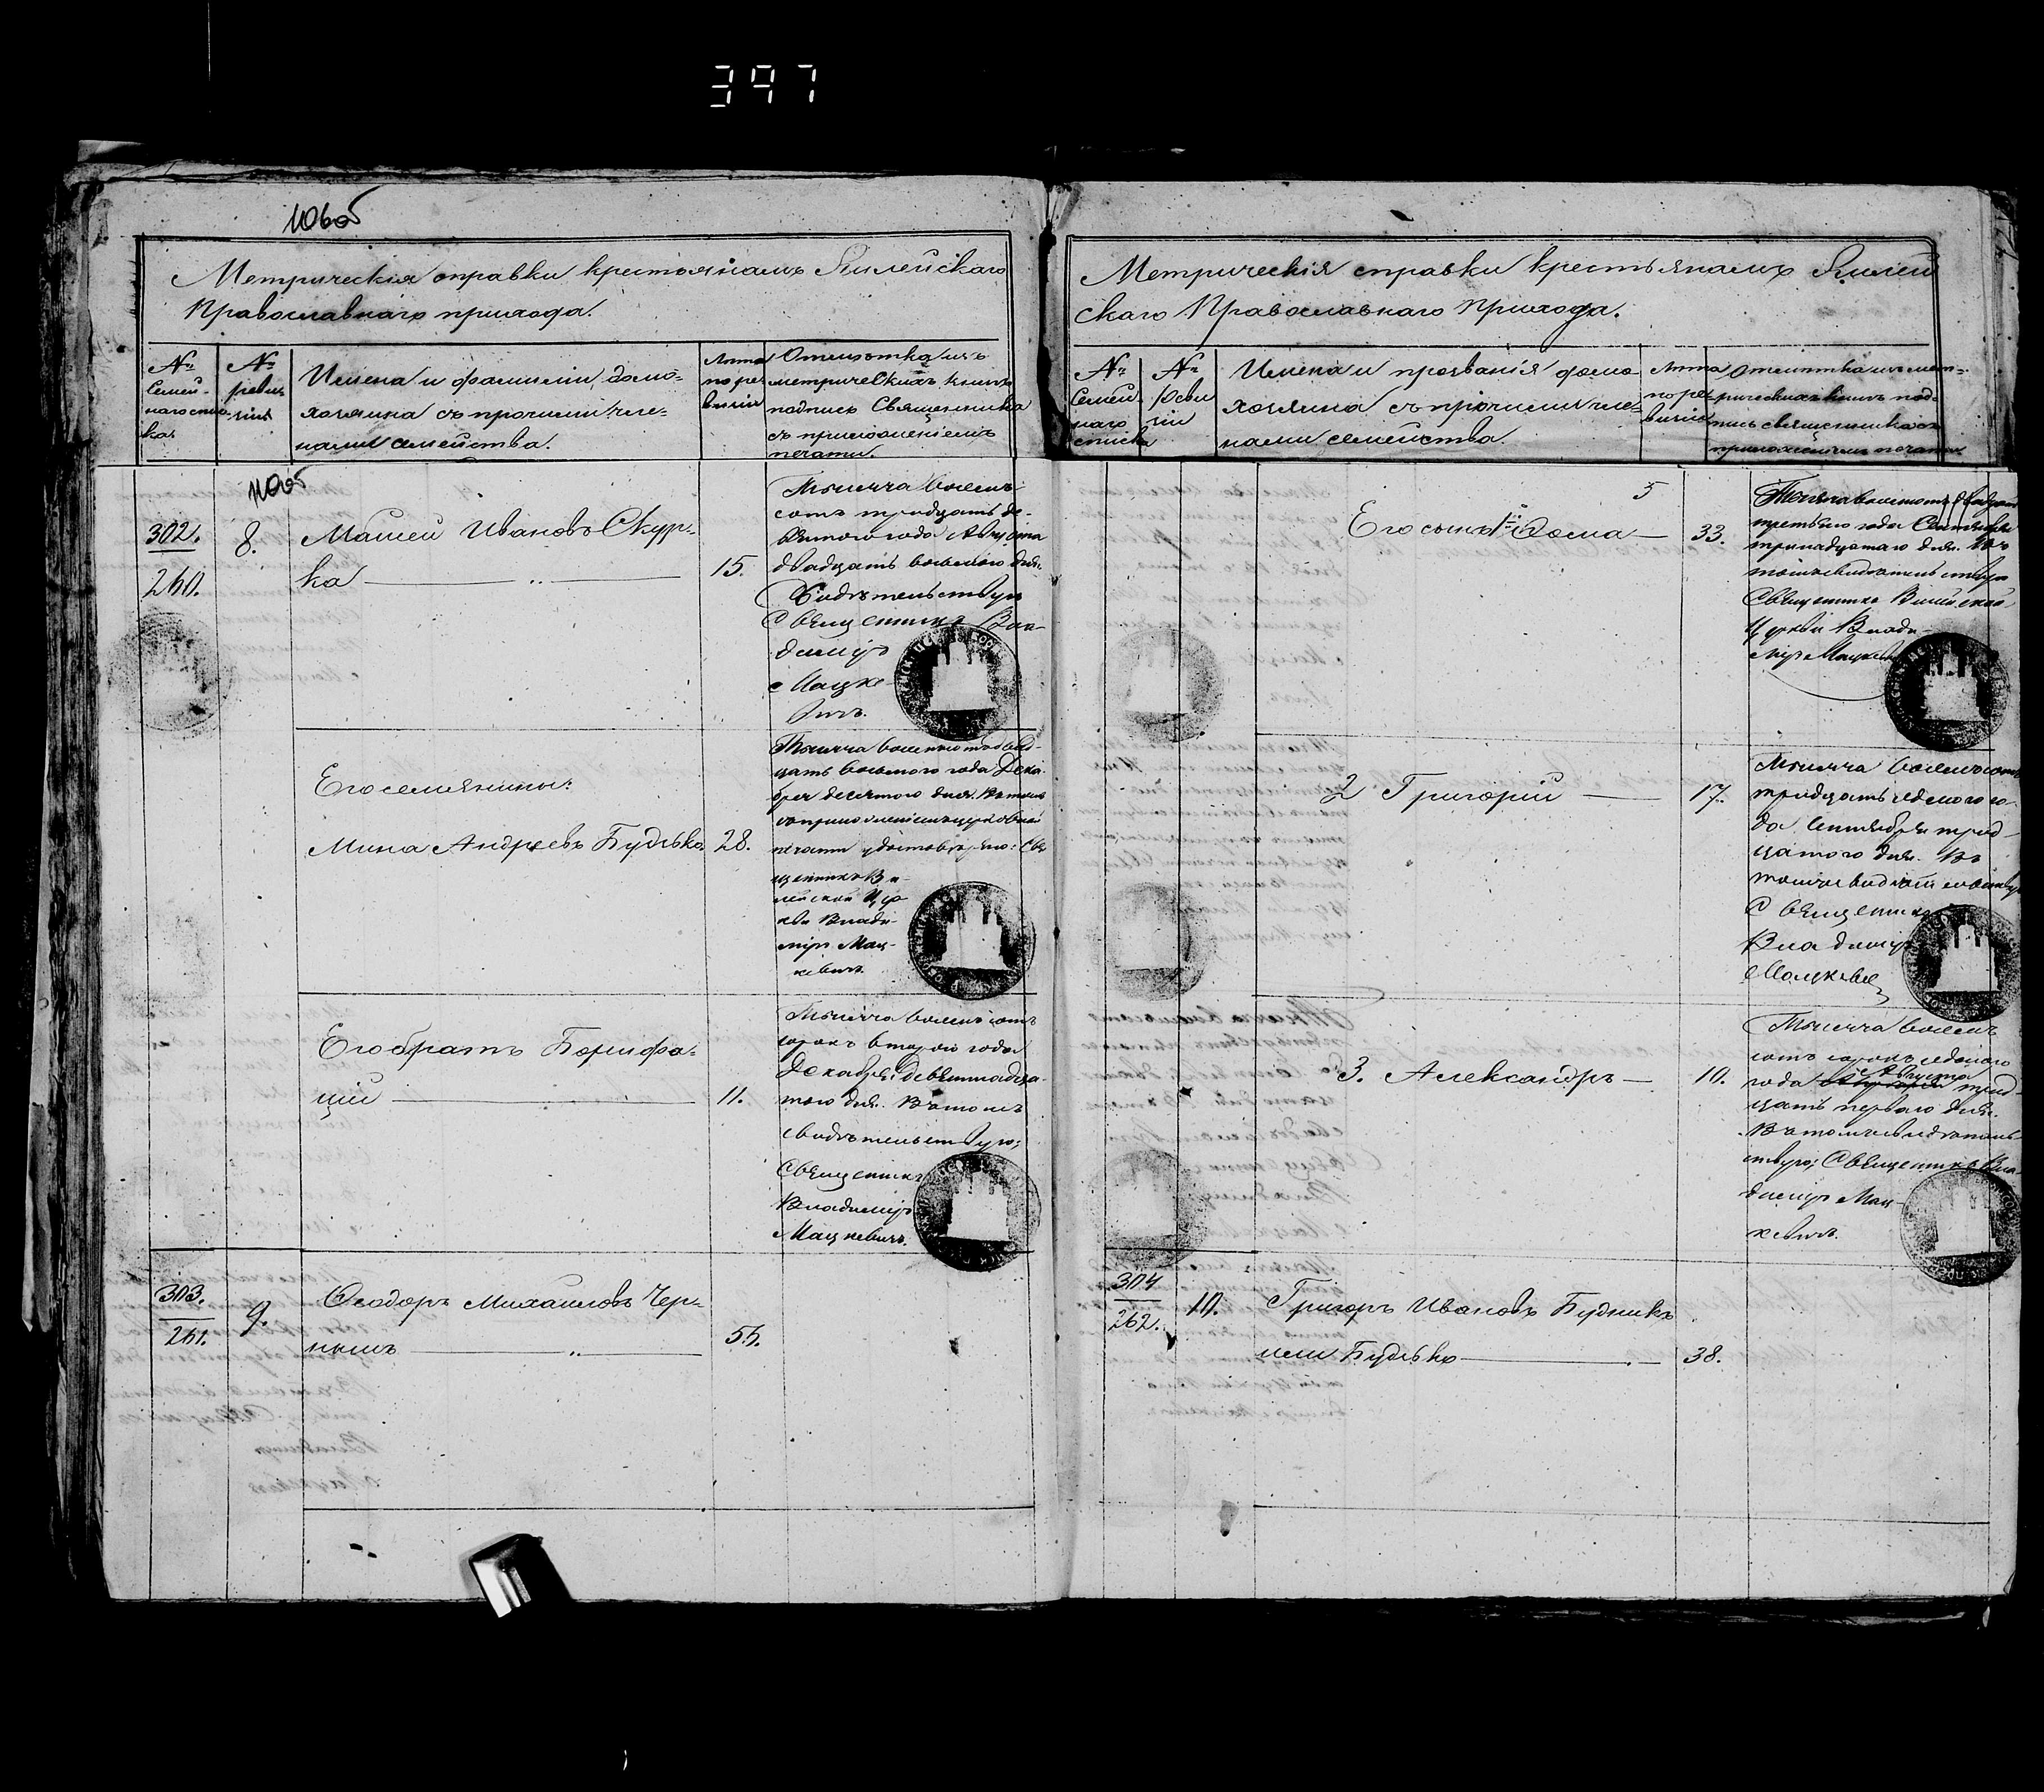 397
110об
Метрическія справки крестьянамъ
Православнаго прихода.
№
Семей-
наго спис-
ка.
№
ревиз-
зіи.
Имена и фамиліи домо-
хозяина съ прочими чле-
нами семейства.
Лѣта
по ре-
визіи
Отмѣтка изъ
метрическихъ книгъ
подпись Священника
съ приложеніемъ
печати.
110об
302.
260.
8.
Матеи Ивановъ Скур-
ка
15.
Тысяча восемь-
сотъ тридцать де-
вятого года Августа
двадцать восьмого дня.
Свидѣтельствую
Священникъ Вла-
димиръ
Мацке-
вичъ.
Его семянины:
Мина Андреевъ Будько
28.
Тысяча восемьсотъ двад-
цать восьмого года Дека-
бря десятого дня. Въ томъ
съ приложеніемъ церковной
печати удостовѣряю: Свя-
щенникъ Ви-
лейской Цер-
кви Влади-
миръ Мац-
кевичъ.
Его братъ Бонифа-
цій
11.
Тысяча восемьсотъ
сорокъ второго года
Декабря девятнадца-
того дня. Въ томъ
свидѣтельствую;
Священникъ
Владимиръ
Мацкевичъ.
303.
261.
9.
Ѳеодоръ Михайловъ Чер-
нышъ
55.
Метрическія справки крестьянамъ
скаго Православнаго Прихода.
№
Семей-
наго
списка
№
Реви-
зіи
Имена и прозванія домо-
хозяина съ прочими чле-
нами семейства.
Лѣта
по ре-
визіи
Отмѣтка изъ мет-
рическихъ книгъ под-
пись священника съ
приложеніемъ печати
5
Его сынъ 1й Ѳома
33.
Тысяча восемьсотъ двадцать
третьяго года Сентября
тринадцатаго дня. Въ
томъ свидѣтельствую
Священникъ Вилейской
Церкви Влади-
миръ Мацкевичъ
2 Григорій
17.
Тысяча восемьсотъ
тридцать седьмого го-
да Сентября трид-
цатого дня. Въ
томъ свидѣтельствую
Священникъ
Владимиръ
Мацкевичъ
3. Александръ
10.
Тысяча восемь
сотъ сорокъ седьмого
года Августа трид-
цать перваго дня.
Въ томъ свидѣтель-
ствую; Священникъ Вла-
димиръ Мац-
кевичъ.
304
262.
10.
Григоръ Ивановъ Будникъ
или Будько
38.